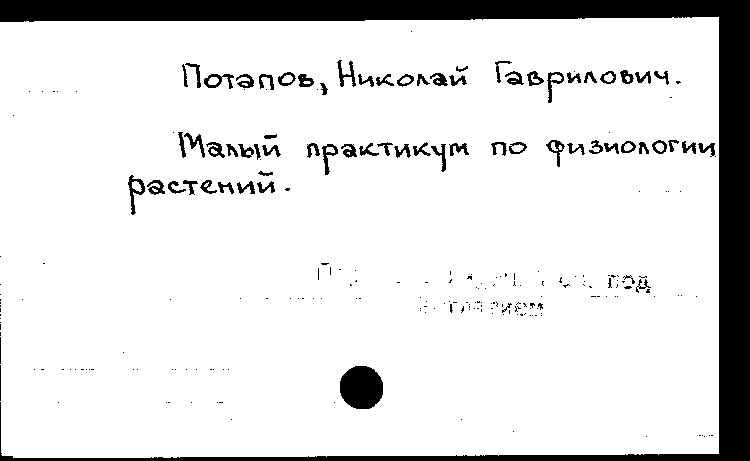 Потапов, Николай Гаврилович.
Малый практикум по физиологии
растений.
под
заглавием